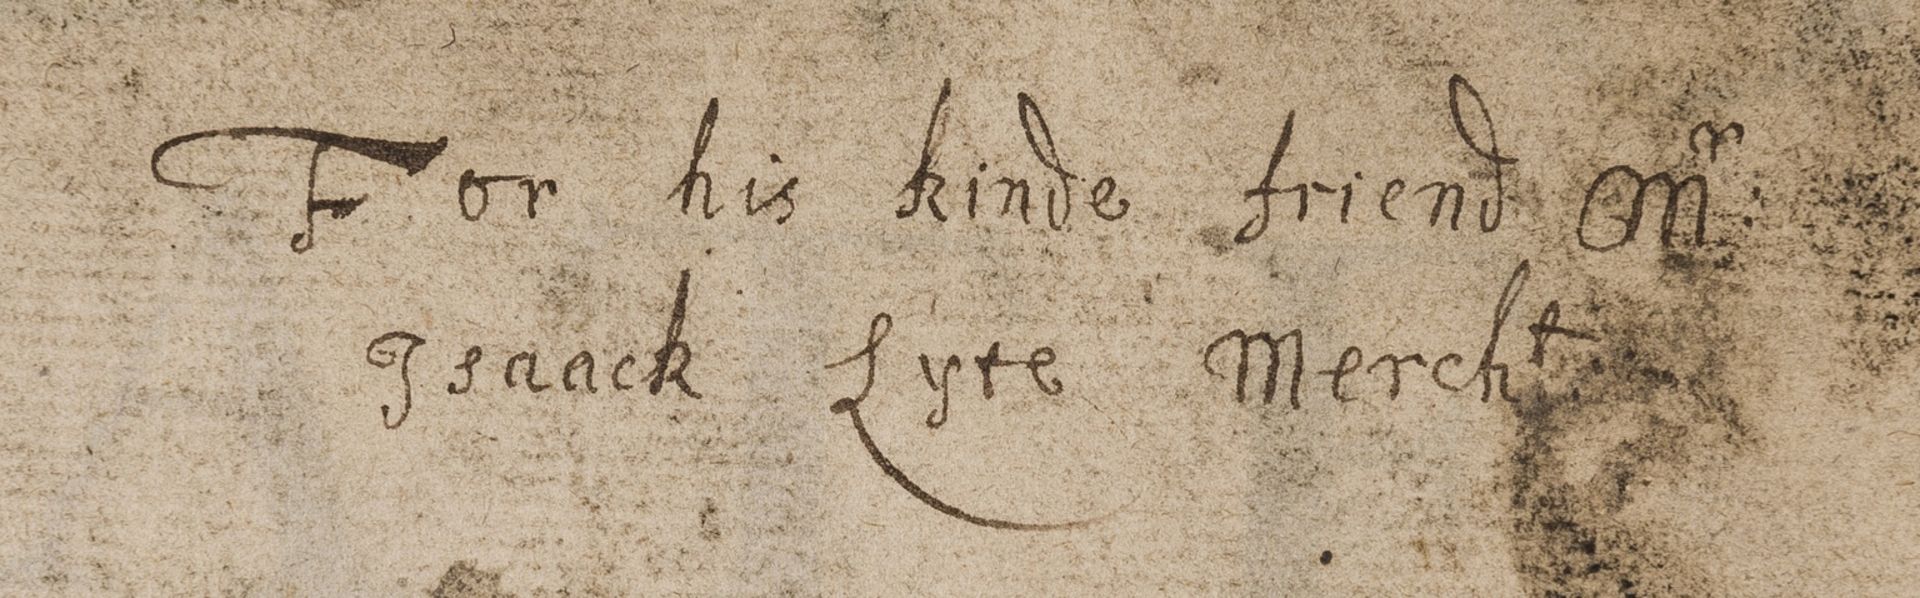 For his kinde friend Mr:
Isaack Lyte Mercht